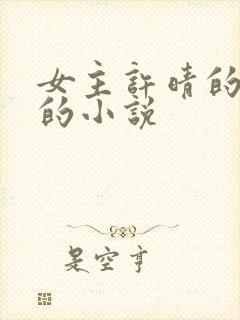 女主許晴的
的小說
是空亨